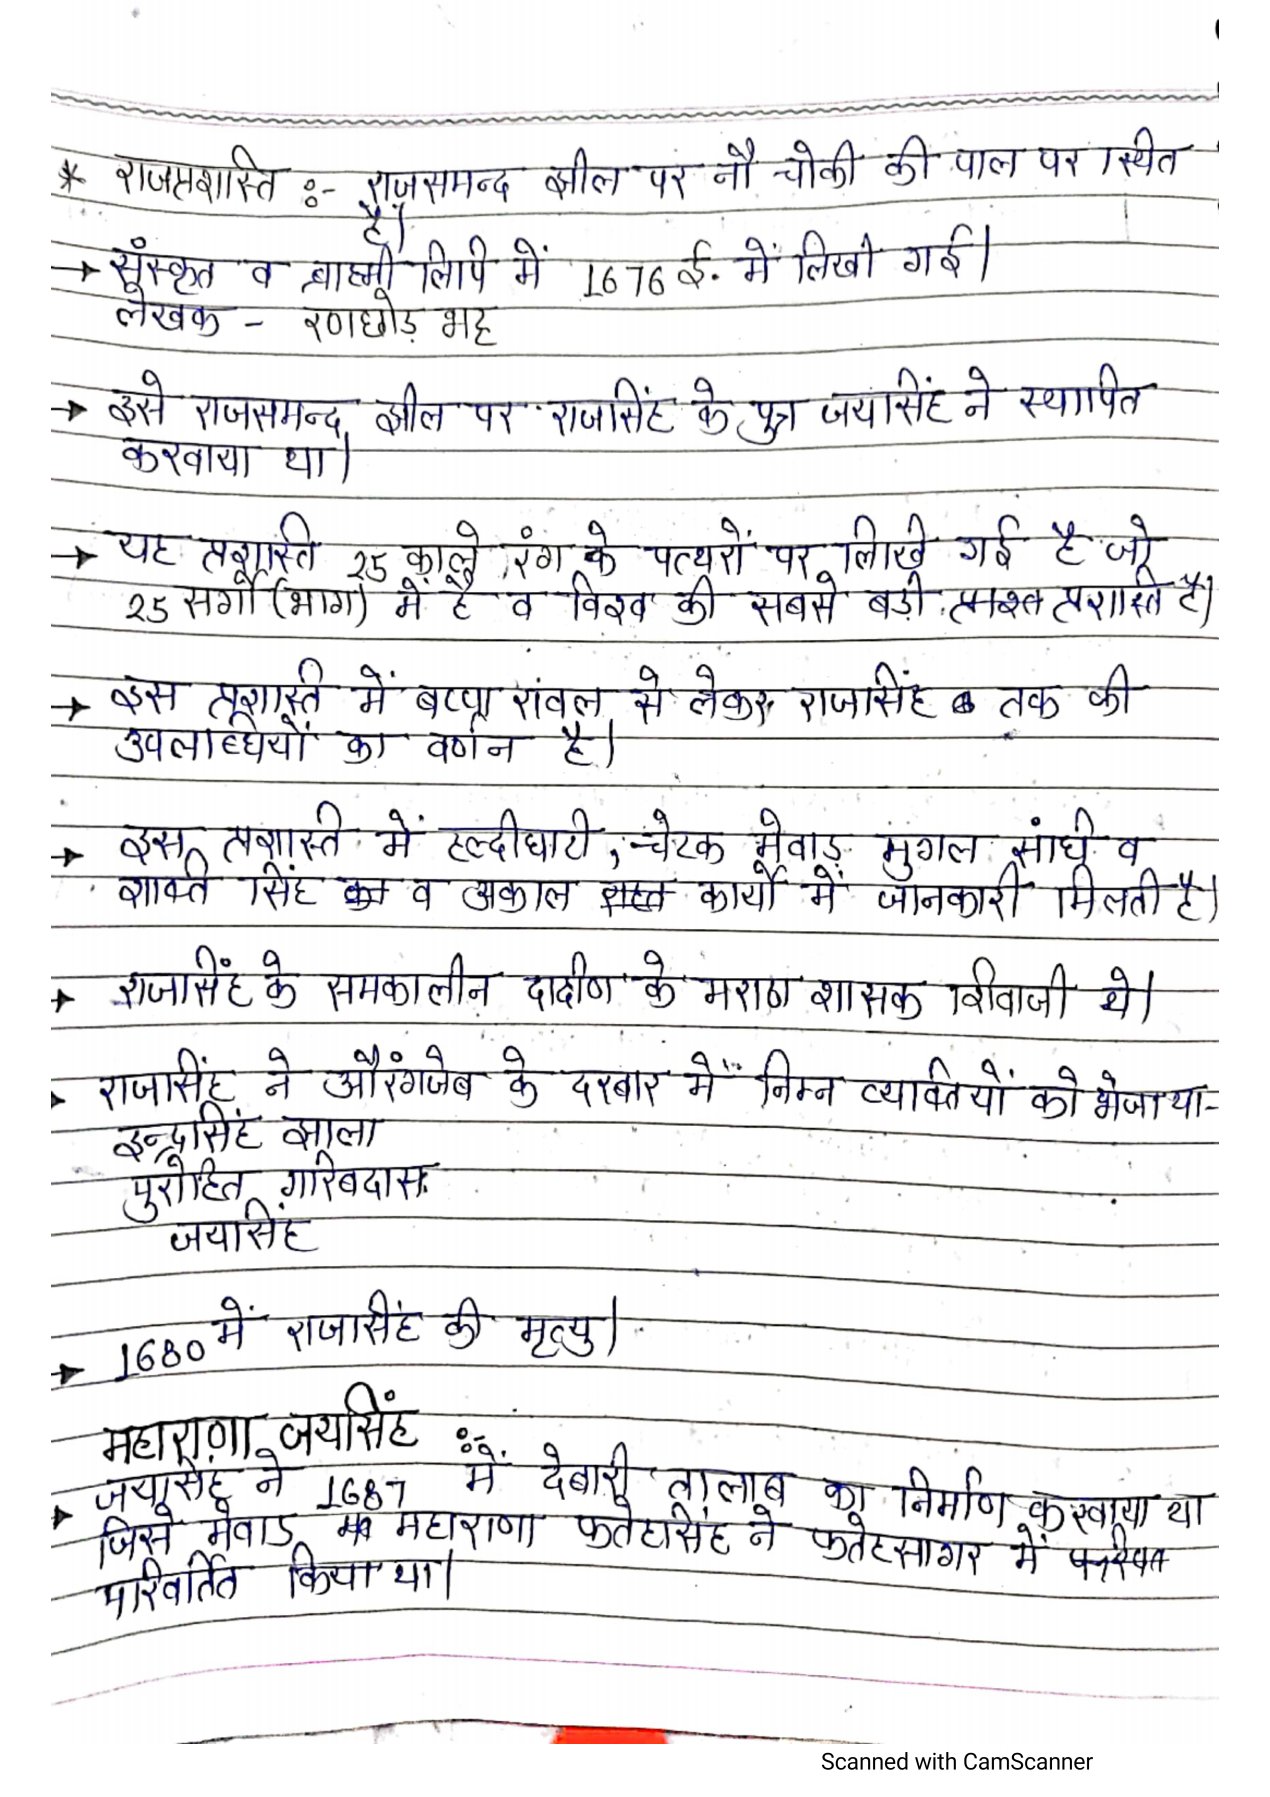 * राजप्रशस्ति :- राजसमन्द झील पर नौ चोकी की पाल पर स्थित
है।
→ संस्कृत व ब्राह्मी लिपि में 1676 ई. में लिखी गई।
लेखक - रणछोड़ भट्ट
→ इसे राजसमन्द झील पर राजसिंह के पुत्र जयसिंह ने स्थापित
करवाया था।
→ यह प्रशस्ति 25 काले रंग के पत्थरों पर लिखि गई है जो
25 सर्गों (भाग) में है व विश्व की सबसे बड़ी प्रशस्ति है।
→ इस प्रशस्ति में बप्पा रावल से लेकर राजसिंह तक की
उपलब्धियों का वर्णन है।
→ इस प्रशस्ति में हल्दीघाटी, चेटक मेवाड़ मुगल संधि व
शक्ति सिंह व अकाल कार्यों में जानकारी मिलती है।
→ राजसिंह के समकालीन दक्षिण के मराठा शासक शिवाजी थे।
→ राजसिंह ने औरंगजेब के दरबार में निम्न व्यक्तियों को भेजा था-
इन्द्रसिंह झाला
पुरोहित गरिबदास
जयसिंह
→ 1680 में राजसिंह की मृत्यु।
महाराणा जयसिंह :-
→ जयसिंह ने 1687 में देबारी तालाब का निर्माण करवाया था
जिसे मेवाड महाराणा फतेहसिंह ने फतेहसागर में
परिवर्तित किया था।
Scanned with CamScanner